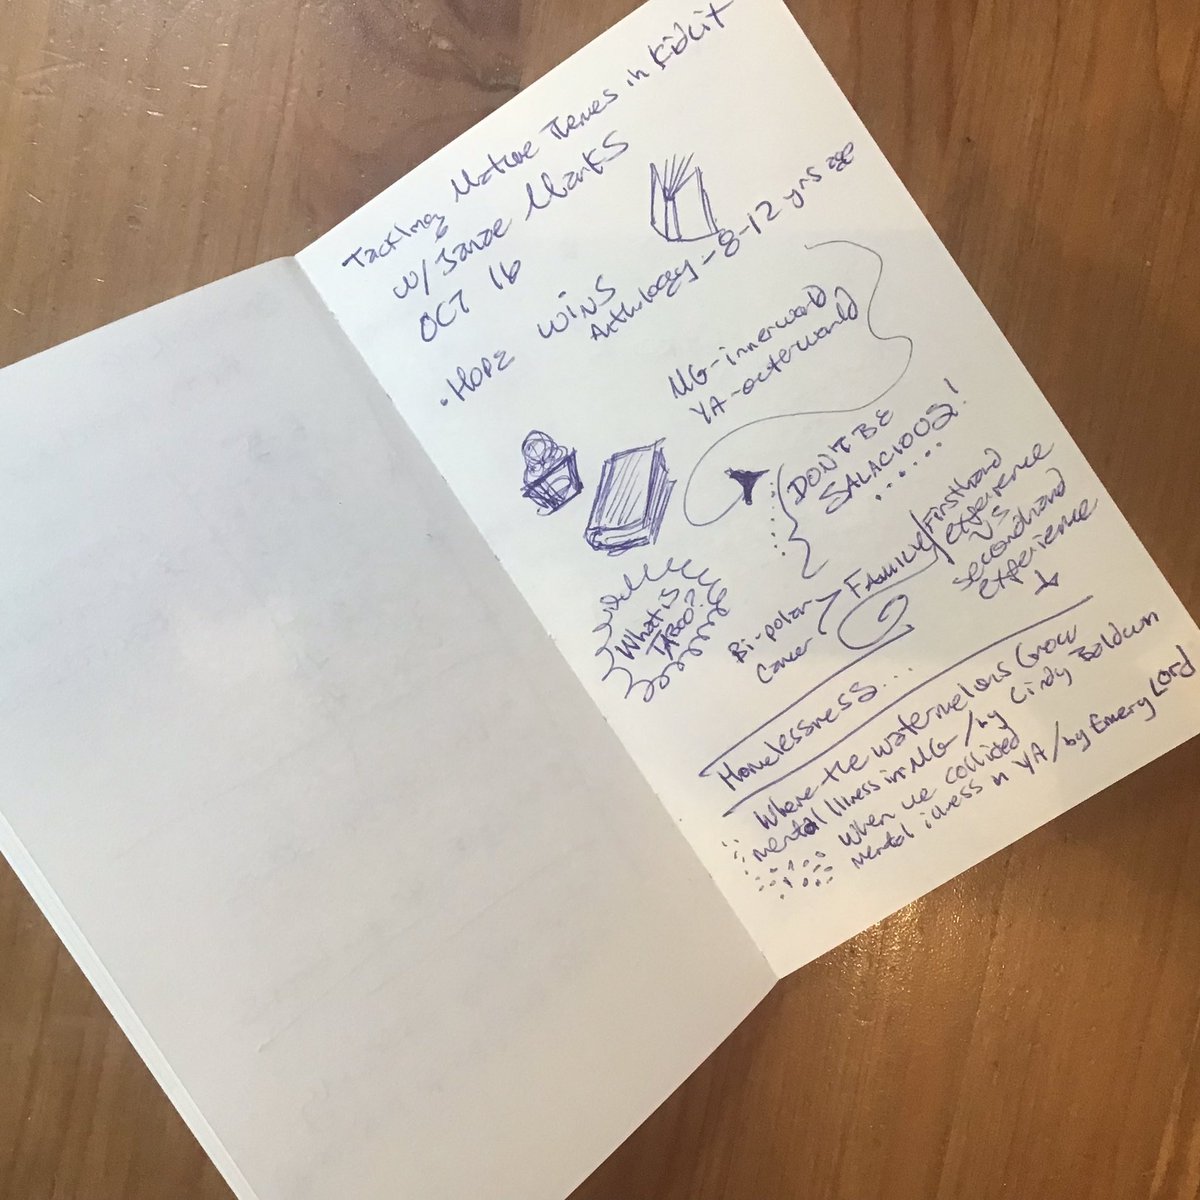 Tackling Mature Themes in Kidlit
w/ Janae Marks
OCT 16
• HOPE WINS
Anthology - 8-12 yrs age
MG - innerworld
YA - outerworld
DON'T BE
SALACIOUS!
What is
TABOO?
Bi-polar
Cancer
FAMILY/Firsthand
experience
VS
secondhand
experience
Homelessness...
Where the watermelons Grow
mental illness in MG/by Cindy Baldwin
When we collided
mental illness in YA/by Emery Lord